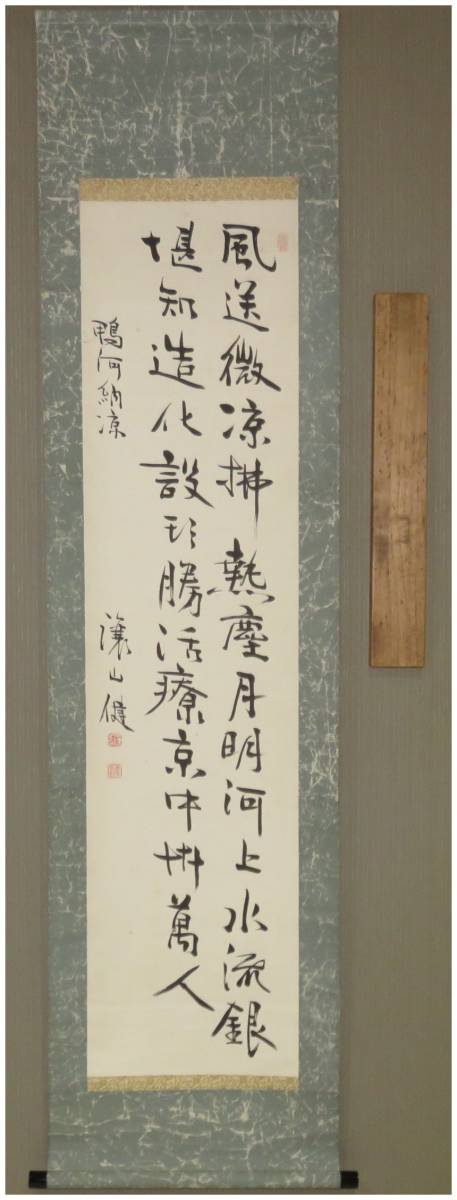 風送微凉拂熱塵月明河上水流銀
堪知造化設形勝活療京中卅萬人
鴨河納凉
讓山健